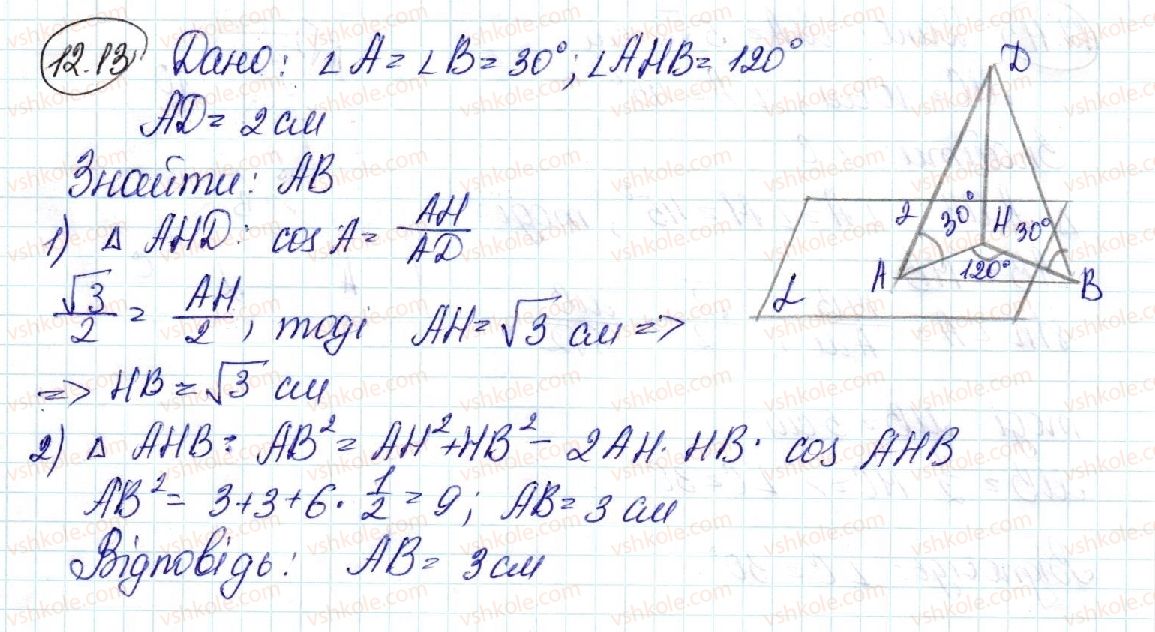 12.13 Дано: ∠A = ∠B = 30°; ∠AHB = 120°
AD = 2 см
Знайти: AB
1) △ AHD: cos A = AH/AD
√3/2 = AH/2, тоді AH = √3 см =>
=> HB = √3 см
2) △ AHB: AB² = AH² + HB² - 2AH · HB · cos AHB
AB² = 3 + 3 + 6 · 1/2 = 9; AB = 3 см
Відповідь: AB = 3 см
D
2 30° H 30°
A 120° B
α